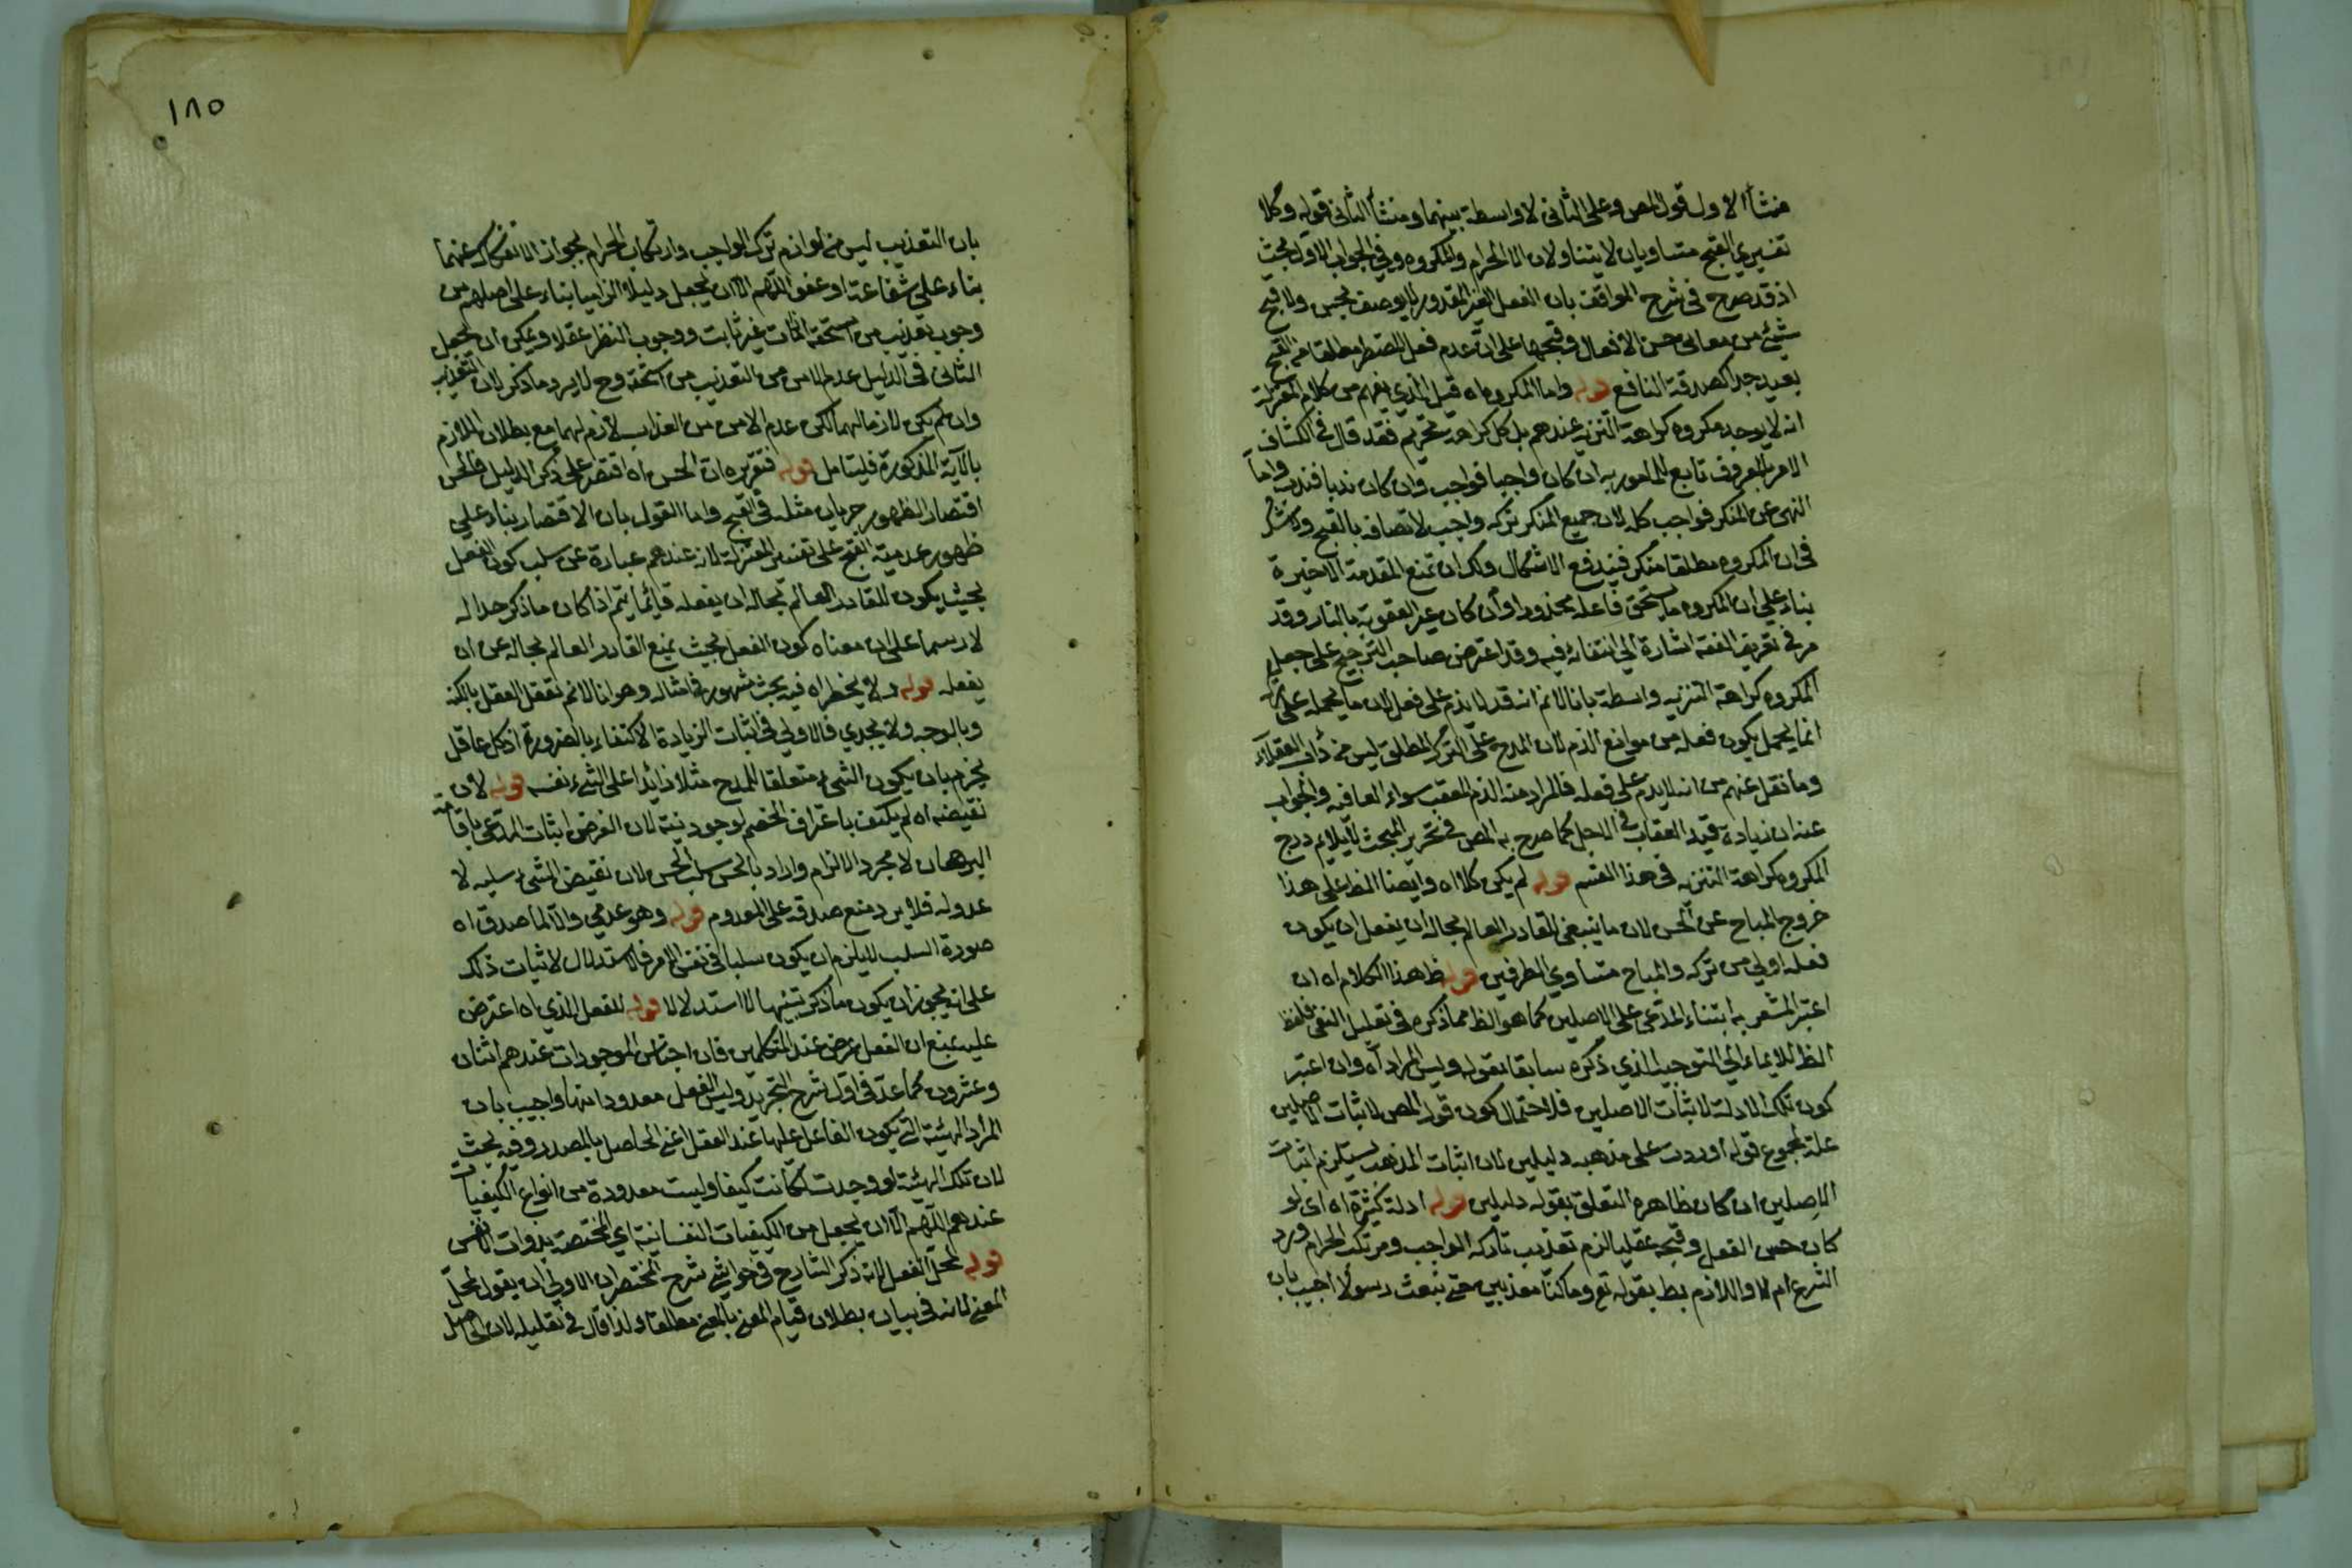 منشأ الاول قول المص وعلى الثانى لا واسطة بينهما ومنشأ الثانى قوله وكلا
تفسيري القبح متساويان لا يتناولان الا الحرام والمكروه وفي الجواب الاول بحث
اذ قد صرح فى شرح المواقف بان الفعل الغير المقدور لا يوصف بحسن ولا قبح
شيئ من معانى حسن الافعال وقبحها على ان عدم فعل المضطر مطلقا من القبح
بعيد جدا كصدقة النافع قوله واما المكروه اه قيل الذي يفهم من كلام المعتزلة
انه لا يوجد مكروه كراهة التنزيه عندهم بل كل كراهة تحريم فقد قال في الكشاف
الامر بالمعروف تابع للمامور به ان كان واجبا فواجب وان كان ندبا فندب واما
النهى عن المنكر فواجب كله لان جميع المنكر تركه واجب لاتصافه بالقبح ولا شك
فى ان المكروه مطلقا منكر فيندفع الاشكال ولك ان تمنع المقدمة الاخيرة
بناء على ان المكروه ما يستحق فاعله محذورا وان كان غير العقوبة بالنار وقد
مر في تعريف الفقه اشارة الي انتفائه فيه وقد اعترض صاحب الترجيح على جعل
المكروه كراهة التنزيه واسطة بانا لا نم انه قد لا يذم على فعله لان ما يحمله على
انما يحمل بكون فعله من موانع الذم لان المدح على الترك المطلق ليس من دأب العقلاء
وما نقل عنهم من انه لا يذم على فعله فالمراد منه الذم المعقب سواء العاقبه والجواب
عنه ان زيادة قيد العقاب في الاجل كما صرح به المص فى تحرير المبحث لا يلايم درج
المكروه كراهة التنزيه فى هذا القسم قوله لم يكن كلا اه وايضا الظ على هذا
خروج المباح عن الحسن لان ما ينبغى للقادر العالم بحاله ان يفعل ان يكون
فعله اولي من تركه والمباح متساوي الطرفين قوله ظ هذا الكلام اه ان
اعتبر المشعر به ابتناء المدعى على الاصلين كما هو الظ مما ذكره فى تعليل النفى فلفظ
الظ للايماء الي التوجيه الذي ذكره سابقا بقوله وليس المراد اه وان اعتبر
كون تلك الادلة لاثبات الاصلين فلاحتمال كون قول المص لاثبات الاصلين
علة لمجموع قوله اوردت على مذهبه دليلين لان اثبات المذهب يستلزم اثبات
الاصلين ان كان ظاهره التعلق بقوله دليلين قوله ادلة كثيرة اه اى لو
كان حسن الفعل وقبحه عقليا لزم تعذيب تارك الواجب ومرتكب الحرام ورد
الشرع ام لا واللازم بط بقوله تع وما كنا معذبين حتى نبعث رسولا اجيب بان
١٨٥
بان التعذيب ليس من لوازم ترك الواجب وارتكاب الحرام لجواز الانفكاك عنهما
بناء على شفاعة او عفو اللهم الا ان يجعل دليلا الزاميا بناء على اصلهم من
وجوب تعذيب من استحقه اذا مات غير تائب ووجوب النظر عقلا ويمكن ان يجعل
الثانى فى الدليل عدم الامن من التعذيب من استحقه وح لا يرد ما ذكر لان التعذيب
وان لم يكن لازما لهما لكن عدم الامن من العذاب لازم لهما مع بطلان الملازم
بالآية المذكورة فليتامل قوله فتقريره ان الحسن اه اقتصر على ذكر الدليل في الحسن
اقتصارا لظهور جريان مثله فى القبح واما القول بان الاقتصار بناء على
ظهور عدمية القبح على تفسير المعتزلة لانه عندهم عبارة عن سلب كون الفعل
بحيث يكون للقادر العالم بحاله ان يفعله فانما يتم اذا كان ما ذكر حدا له
لا رسما على ان معناه كون الفعل بحيث يمنع القادر العالم بحاله عن ان
يفعله قوله ولا يخطر اه فيه بحث مشهور فى امثاله وهو انا لا نم تعقل الفعل بالكنه
وبالوجه ولا يجدي فالاولى فى اثبات الزيادة الاكتفاء بالضرورة اذ كل عاقل
يجزم بان يكون الشئ متعلقا للمدح مثلا زائدا على الشئ نفسه قوله لان
نقيضه اه لم يكتف باعتراف الخصم بوجوديته لان الغرض اثبات المدعى باقامة
البرهان لا مجرد الالزام واراد بالحسن سلب الحسن لان نقيض الشئ سلبه لا
عدوله فلا يرد منع صدقه على المعدوم قوله وهو عدمي والا لما صدق اه
صورة السلب لا يلزم ان يكون سلبا فى نفس الامر فالاستدلال لاثبات ذلك
على انه يجوز ان يكون ما ذكر تنبيها لا استدلالا قوله للفعل الذي اه اعترض
عليه بمنع ان الفعل عرض عند المتكلمين فان اجناس الموجودات عندهم اثنان
وعشرون كما عد فى اول شرح التجريد وليس الفعل معدودا منها واجيب بان
المراد الهيئة التي يكون الفاعل عليها عند الفعل اعنى الحاصل بالمصدر وفيه بحث
لان تلك الهيئة لو وجدت لكانت كيفا وليست معدودة من انواع الكيفيات
عندهم اللهم الا ان يجعل من الكيفيات النفسانية اي المختصة بذوات الانفس
قوله لمحل الفعل لانه ذكر الشارح فى حواشي شرح المختصر ان الاولى ان يقول لمحل
المعنى لانه فى بيان بطلان قيام المعنى بالمعنى مطلقا ولذا قال في تعليله لان الحاصل